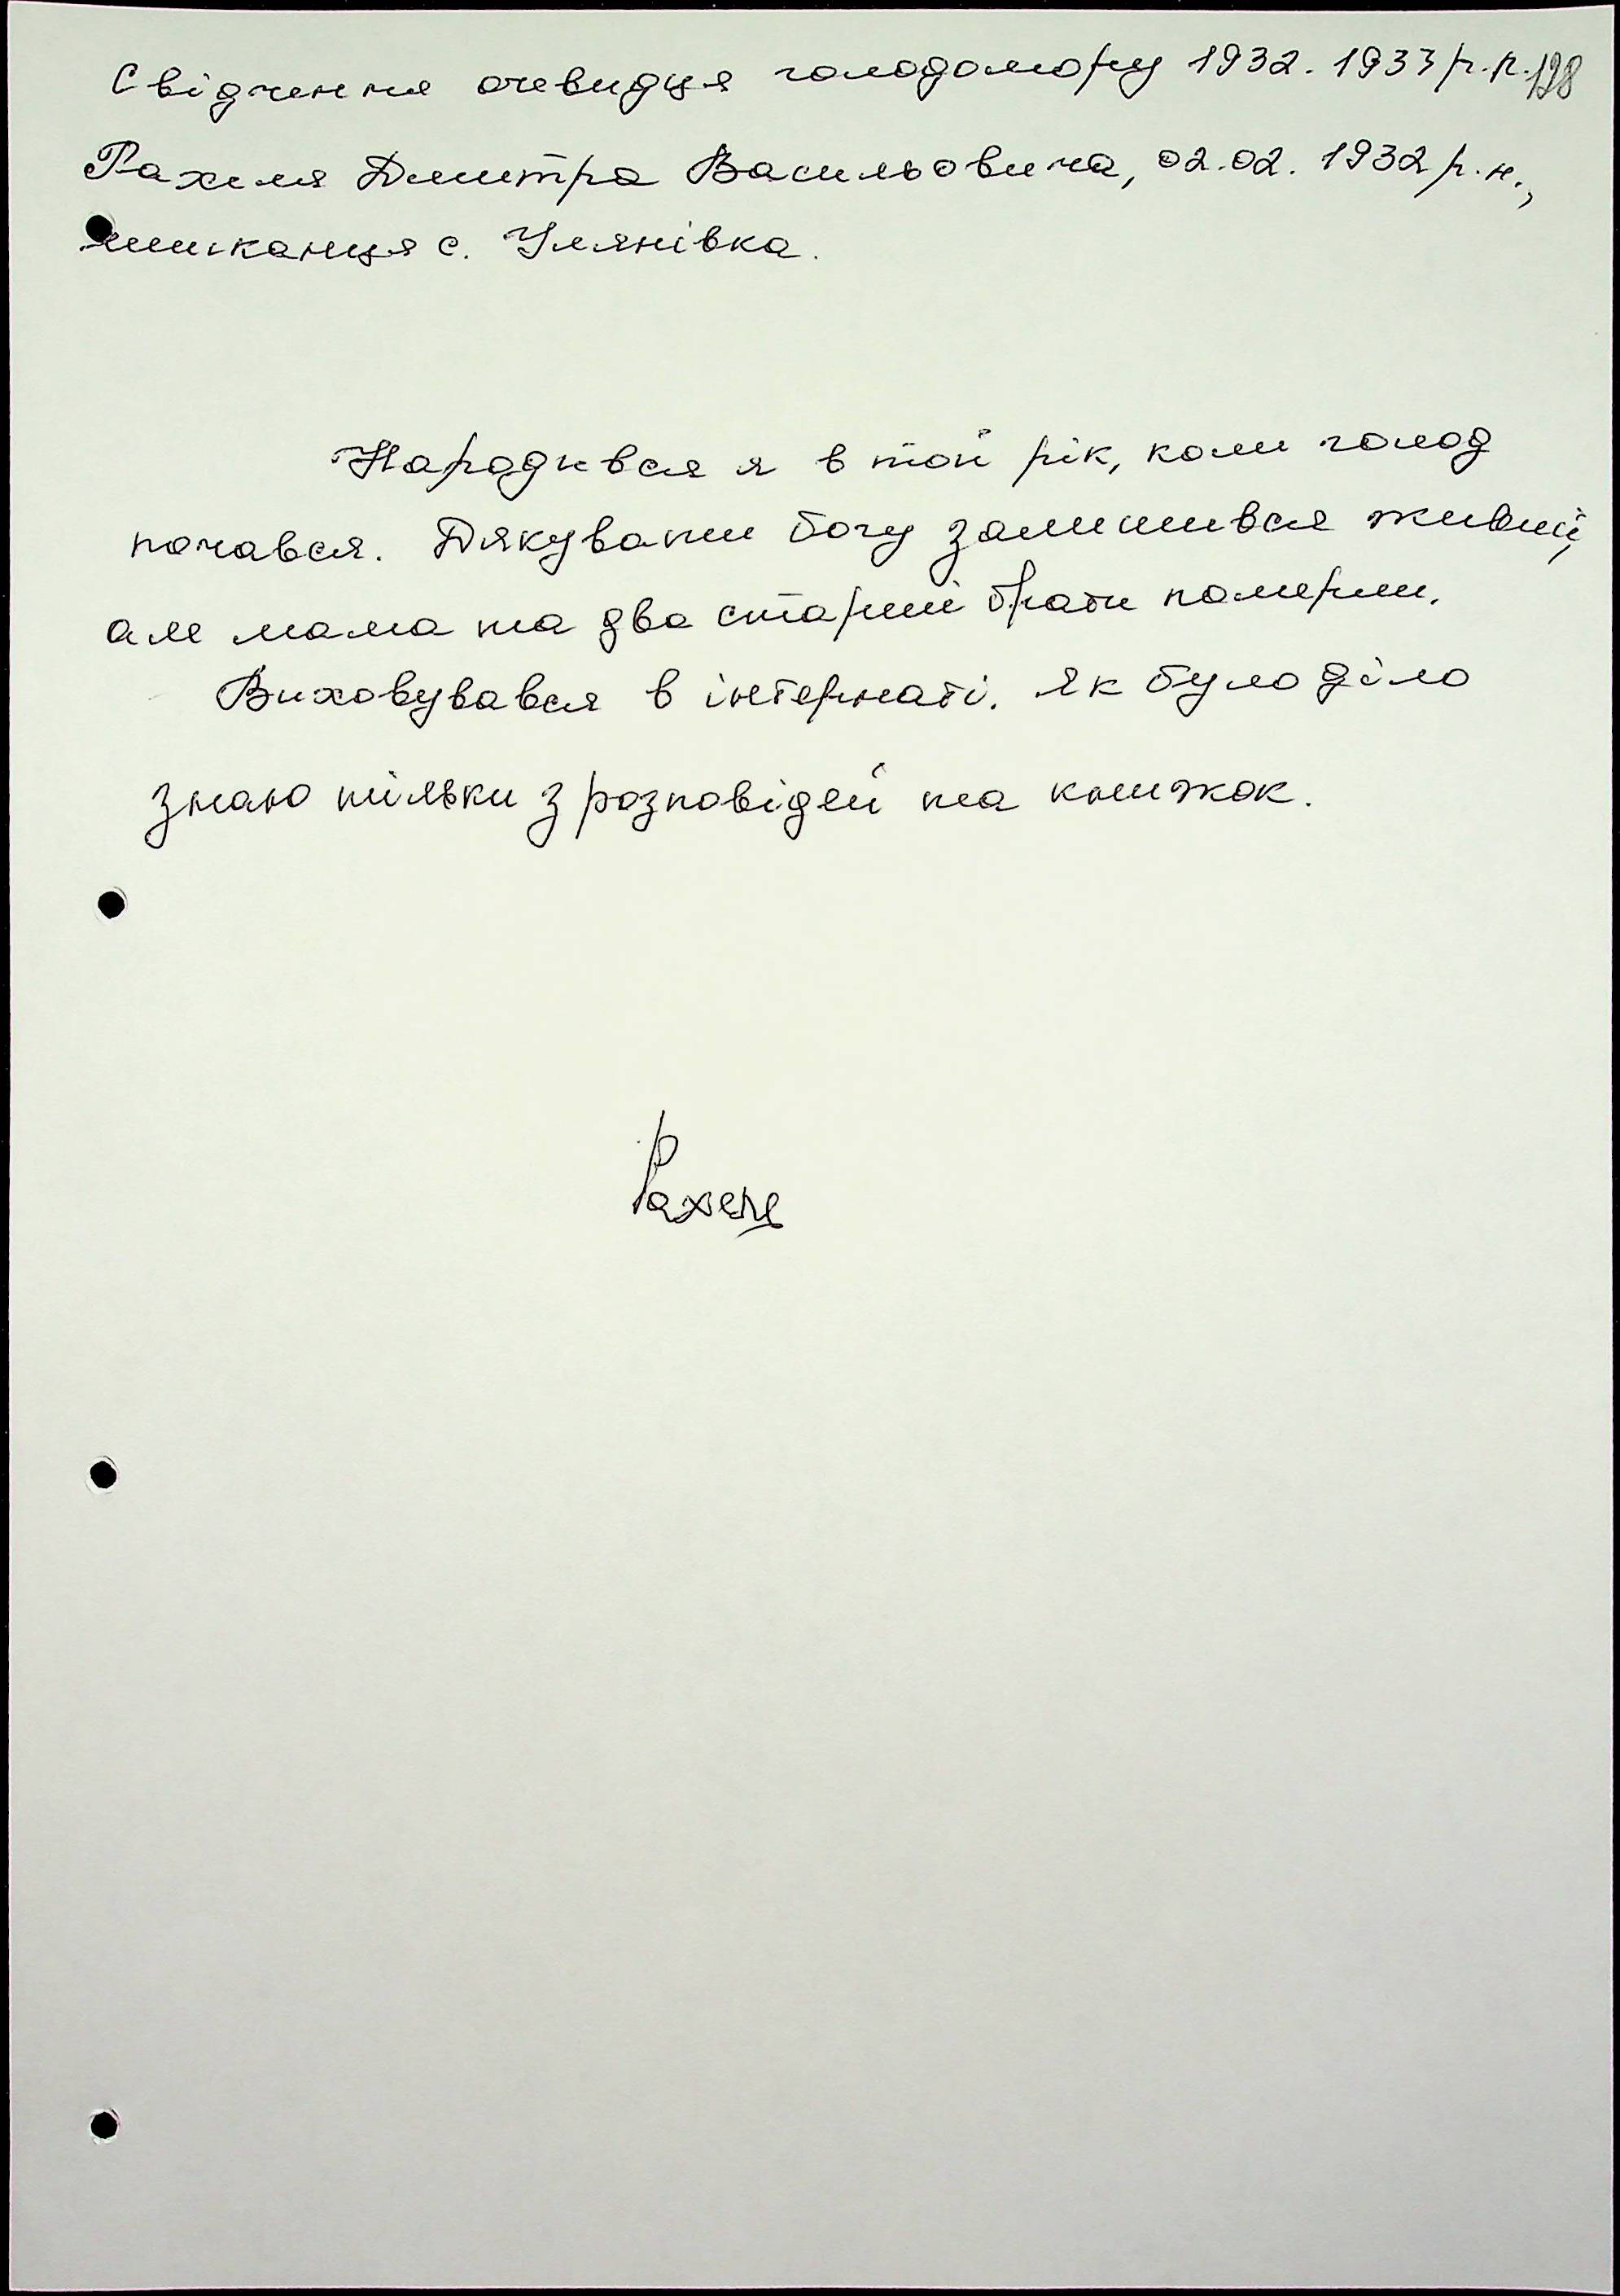 Свідчення очевидця голодомору 1932. 1933 р.р. 198
Рахеля Дмитра Васильовича, 02.02.1932 р.н.,
мешканця с. Улянівка.
Народився я в той рік, коли голод
почався. Дякувати богу залишився живий,
але мама та два старші брати померли.
Виховувався в інтернаті. Як було діло
знаю тільки з розповідей та книжок.
Рахеля